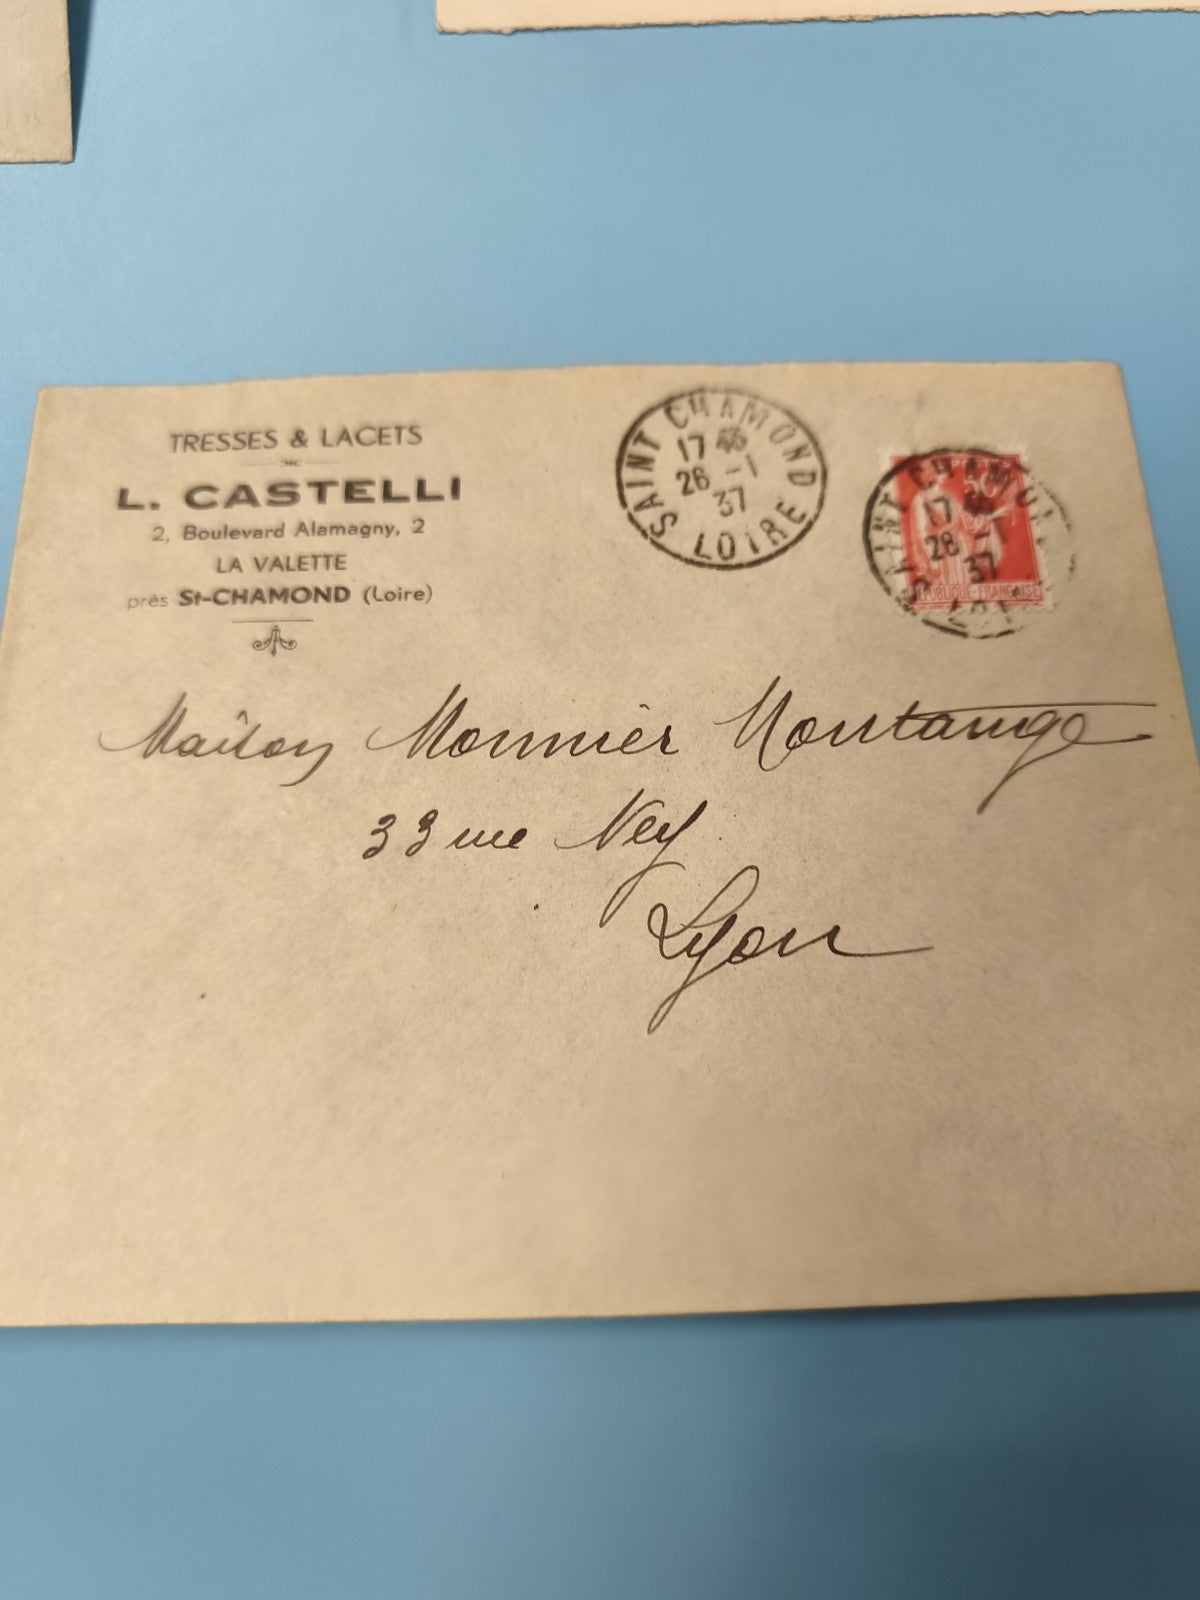 TRESSES & LACETS
L. CASTELLI
2, Boulevard Alamagny, 2
LA VALETTE
près St-CHAMOND (Loire)
SAINT CHAMOND
17
28 -1
37
LOIRE
50
SAINT CHAMOND
17
28 -1
37
RÉPUBLIQUE FRANÇAISE
Maison Monnier Montange
33 rue Ney
Lyon